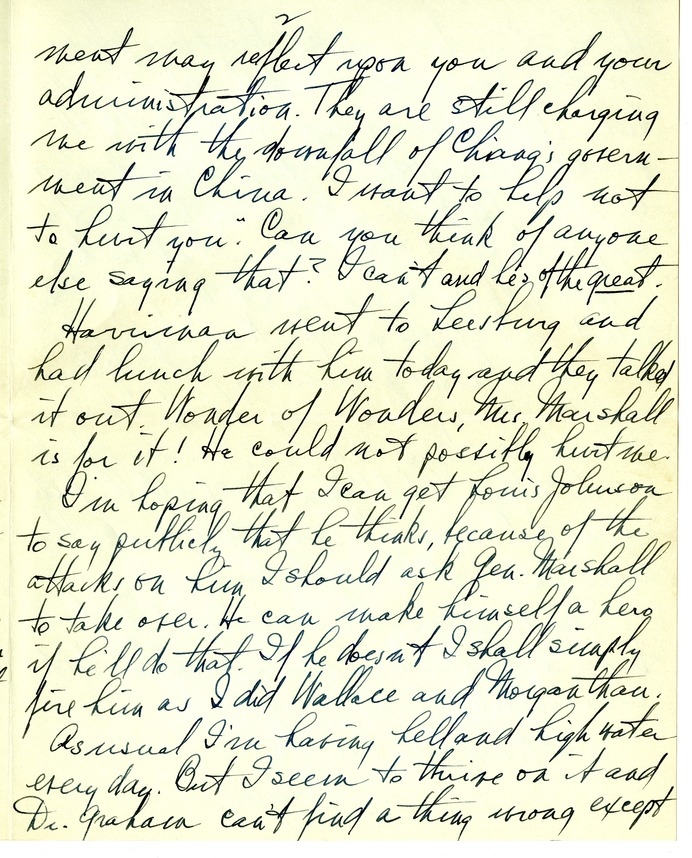 2
ment may reflect upon you and your
administration. They are still charging
me with the downfall of Chiang's govern-
ment in China. I want to help not
to hurt you". Can you think of anyone
else saying that? I can't and he's of the great.
Harriman went to Leesburg and
had lunch with him today and they talked
it out. Wonder of Wonders, Mrs. Marshall
is for it! He could not possibly hurt me.
I'm hoping that I can get Louis Johnson
to say publicly that he thinks, because of the
attacks on him, I should ask Gen. Marshall
to take over. He can make himself a hero
if he'll do that. If he doesn't I shall simply
fire him as I did Wallace and Morganthau.
As usual I'm having hell and high water
every day. But I seem to thrive on it and
Dr. Graham can't find a thing wrong except